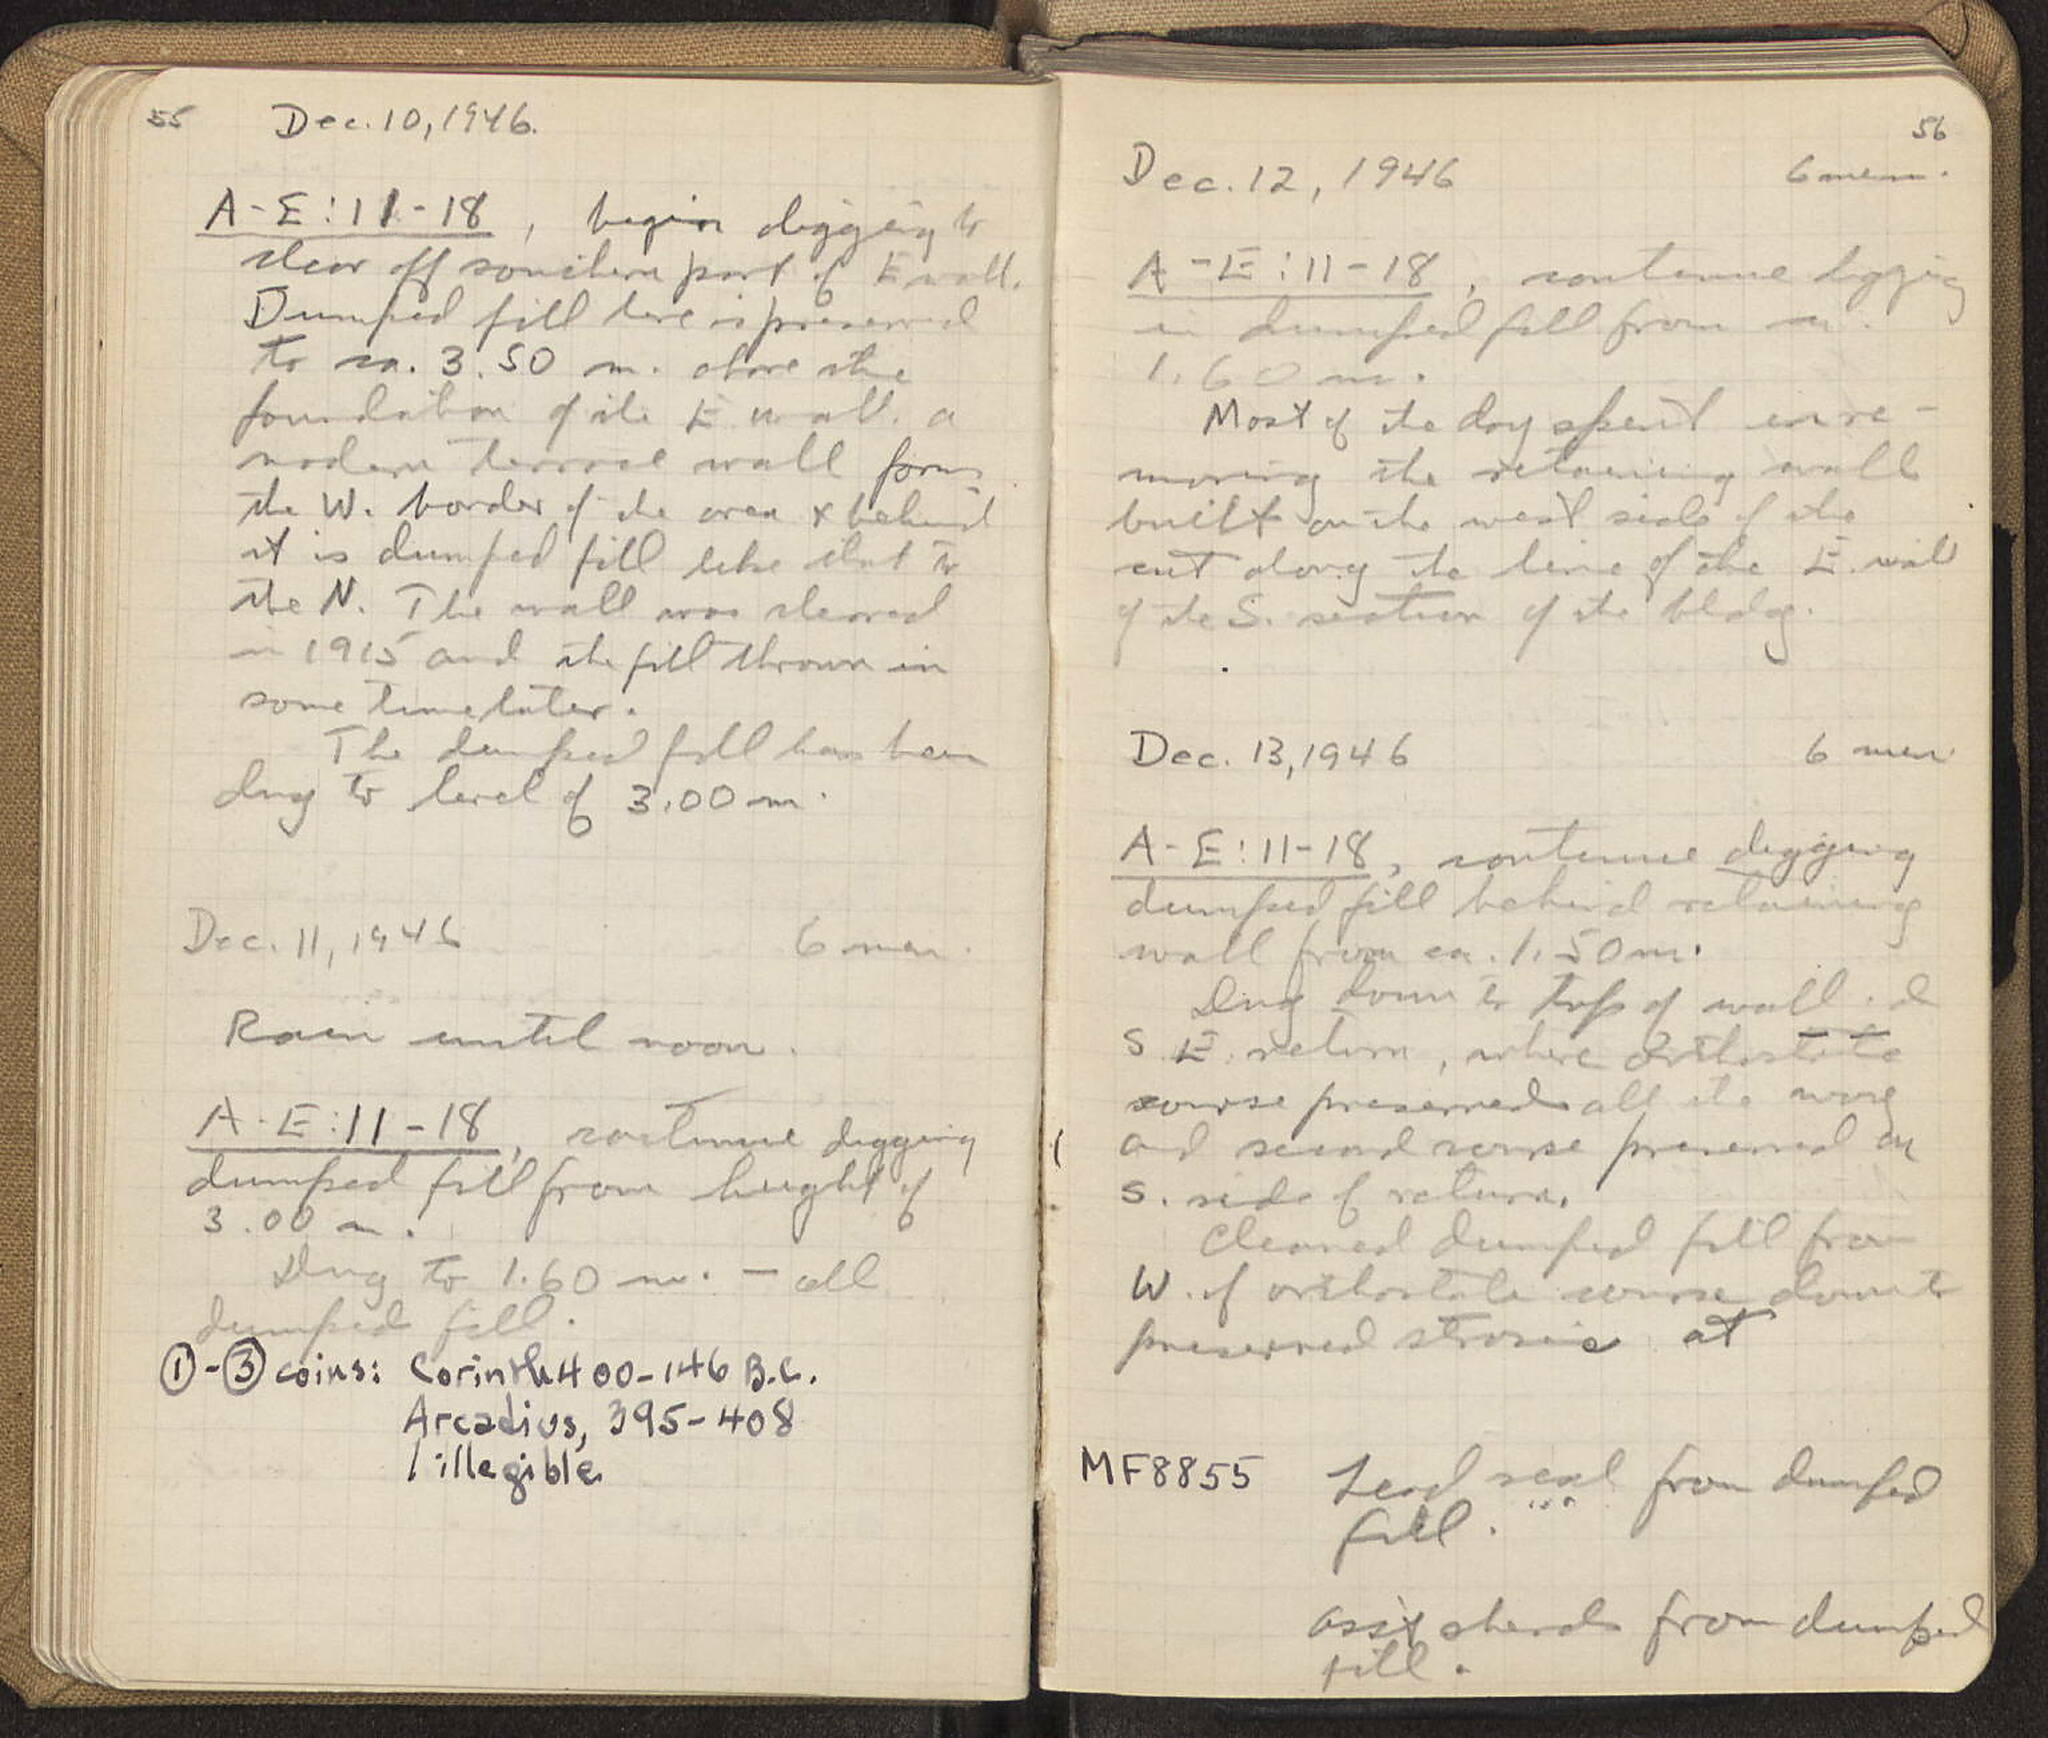 55
Dec. 10, 1946.
A-E:11-18, begin digging to
clear off southern part of E wall.
Dumped fill here is preserved
to ca. 3.50 m. above the
foundation of the E wall. a
modern terrace wall forms
the W. border of the area & behind
it is dumped fill like that to
the N. The wall was cleared
in 1915 and the fill thrown in
some time later.
The dumped fill has been
dug to level of 3.00 m.
Dec. 11, 1946 6 men.
Rain until noon.
A-E:11-18, continue digging
dumped fill from height of
3.00 m.
Dug to 1.60 m. – all
dumped fill.
①-③ coins: Corinth 400-146 B.C.
Arcadius, 395-408
1 illegible
56
Dec. 12, 1946 6 men.
A-E:11-18, continue digging
in dumped fill from
1.60 m.
Most of the day spent in re-
moving the retaining wall
built on the west side of the
cut along the line of the E. wall
of the S. section of the bldg.
Dec. 13, 1946 6 men
A-E:11-18, continue digging
dumped fill behind retaining
wall from ca. 1.50 m.
Dug down to top of wall
S.E. return, where orthostate
course preserved all the way
and second course preserved on
S. side of return.
Cleared dumped fill from
W. of orthostate course down to
preserved at
MF8855 Lead seal from dumped
fill.
asst sherds from dumped
fill.